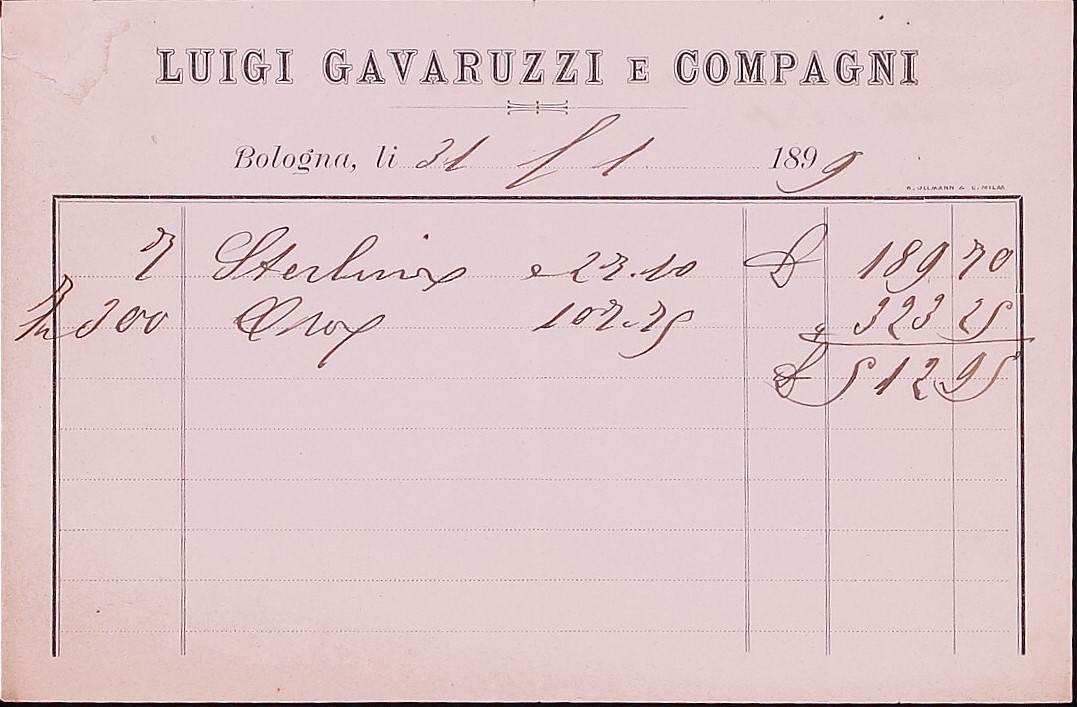 LUIGI GAVARUZZI E COMPAGNI
Bologna, li 31 / 1 1899
ULLMANN & C. MILA
7 Sterline a 27.10 L 189 70
300 Oro 107.75 323 25
L 512 95